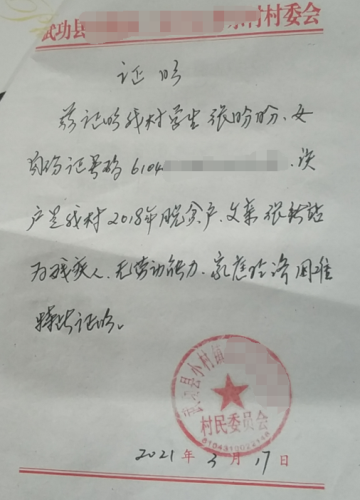 武功县 村村委会
证明
兹证明我村学生张盼盼、女
身份证号码6104 、该
户是我村2018年脱贫户、父亲张
为残疾人、无劳动能力、家庭经济困难
特此证明。
武功县小村镇
村民委员会
2021年3月17日